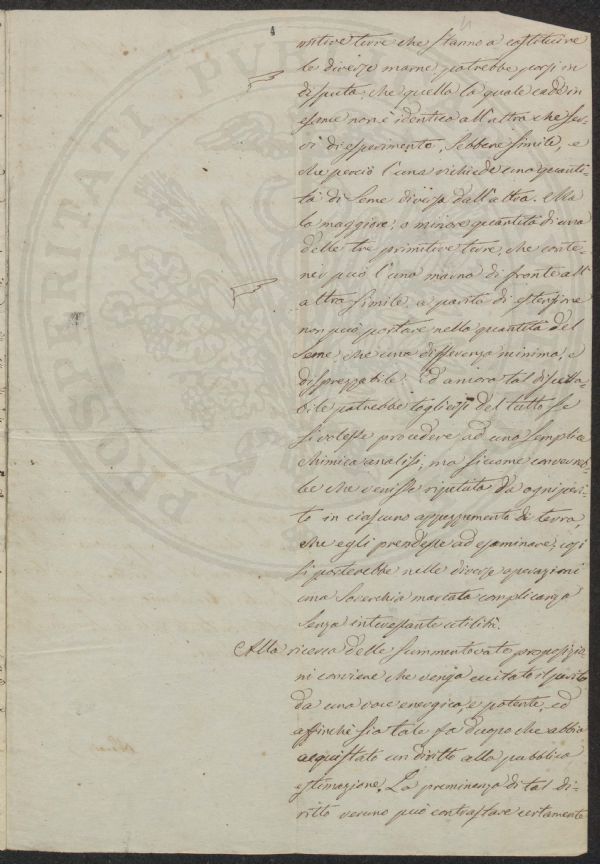 mitive terre che stanno a costituire
le diverse marne, potrebbe porsi in
disputa, che quella la quale cade in
esame non è identica all'altra che ser-
vì di esperimento, sebbene simile, e
che perciò l'una richiede una quanti-
tà di seme diversa dall'altra. Ma
la maggiore, o minore quantità di una
delle tre primitive terre, che conte-
ner può l'una marna di fronte all'
altra simile, a parità di estensione
non può portare nella quantità del
seme, che una differenza minima, e
disprezzabile. Ed ancora tal discetta-
bile potrebbe togliersi del tutto se
si volesse procedere ad una semplice
chimica analisi, ma siccome converreb-
be che venisse ripetuta da ogni peri-
to in ciascuno appezzamento di terra,
che egli prendesse ad esaminare, così
si porterebbe nelle diverse operazioni
una soverchia marcata complicanza
senza interessante utilità.
Alla ricerca delle summentovate proposizio
ni conviene che venga eccitato il perito
da una voce energica, e potente, ed
affinchè sia tale fa d'uopo che abbia
acquistato un diritto alla pubblica
estimazione. La preminenza di tal di-
ritto veruno può contrastare certamente
PROSPERITATI PVBL